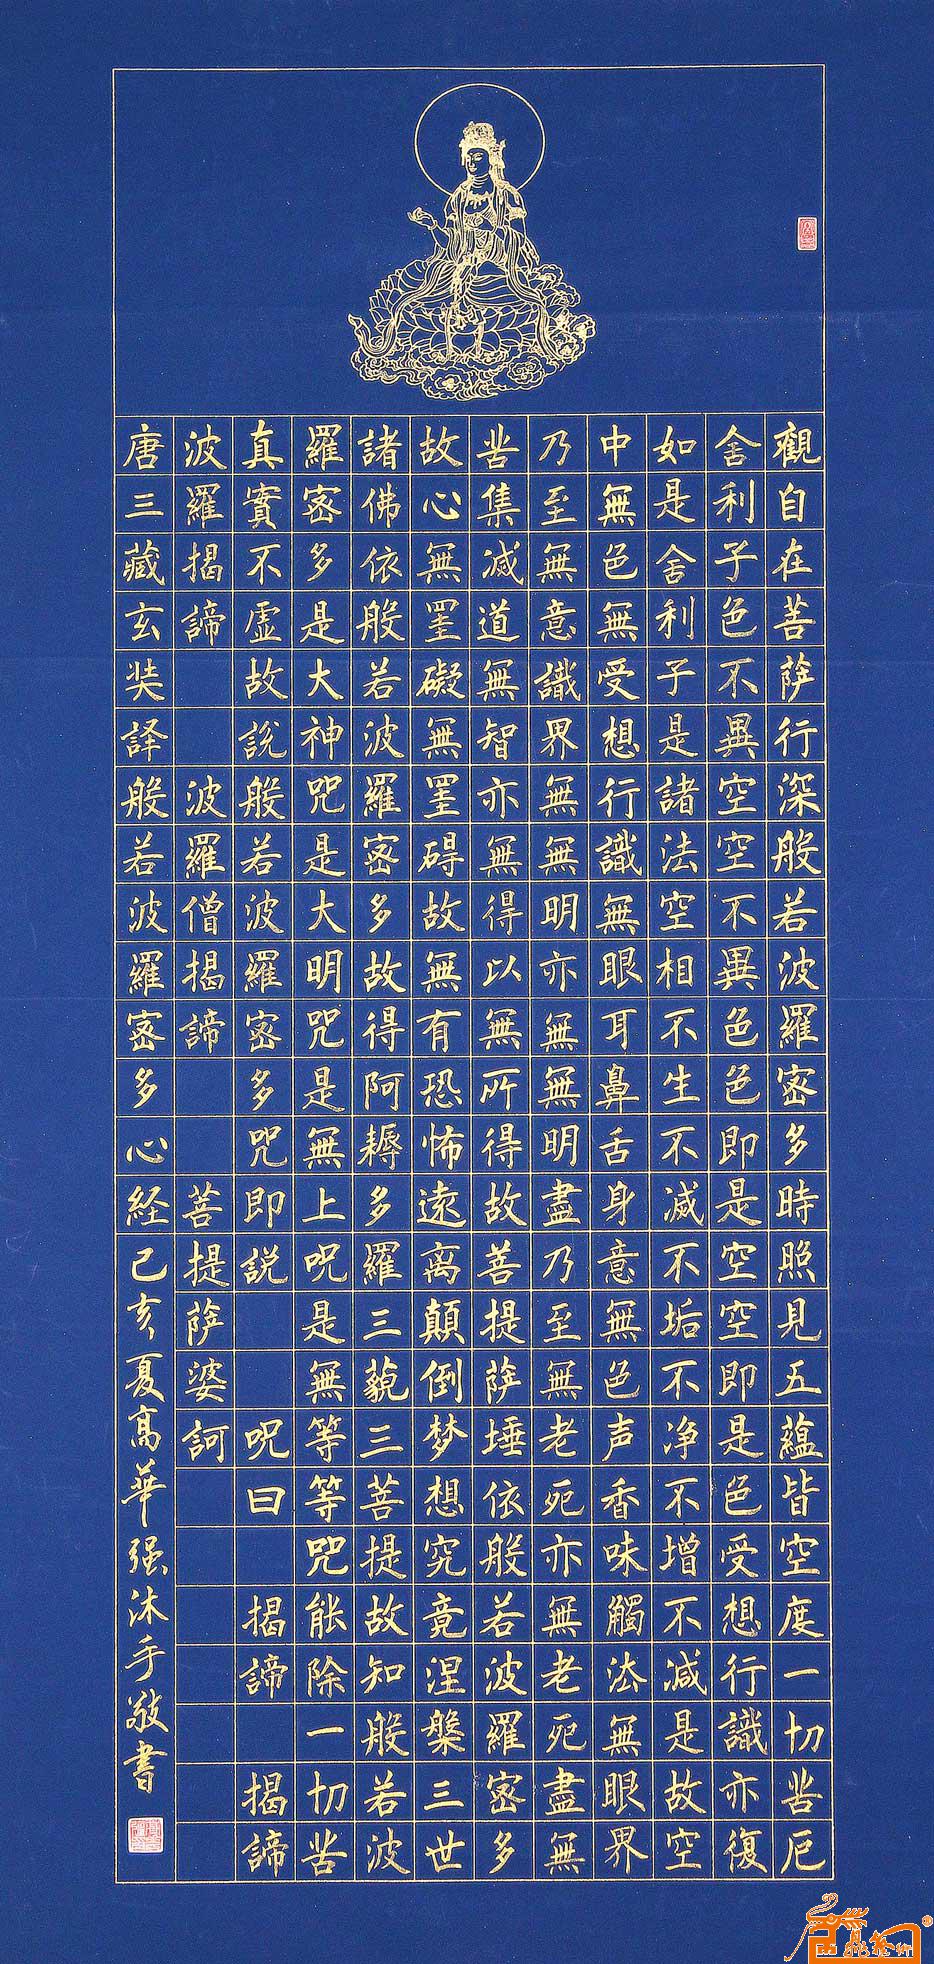 觀自在菩薩行深般若波羅蜜多時照見五蘊皆空度一切苦厄
舍利子色不異空空不異色色即是空空即是色受想行識亦復
如是舍利子是諸法空相不生不滅不垢不净不增不减是故空
中無色無受想行識無眼耳鼻舌身意無色声香味觸法無眼界
乃至無意識界無無明亦無無明盡乃至無老死亦無老死盡無
苦集滅道無智亦無得以無所得故菩提薩埵依般若波羅蜜多
故心無罣礙無罣碍故無有恐怖遠离顛倒梦想究竟涅槃三世
諸佛依般若波羅蜜多故得阿耨多羅三藐三菩提故知般若波
羅蜜多是大神咒是大明咒是無上呪是無等等咒能除一切苦
真實不虛故說般若波羅蜜多咒即説 呪曰 揭諦 揭諦
波羅揭諦 波羅僧揭諦 菩提薩婆訶
唐三藏玄奘譯般若波羅蜜多心経己亥夏高華强沐手敬書